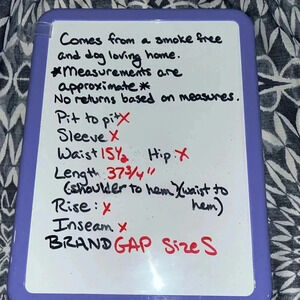 Comes from a smoke free
and dog loving home.
*Measurements are
approximate*
No returns based on measures.
Pit to pit X
Sleeve X
Waist 15½ Hip: X
Length 37 3/4"
(shoulder to hem)(waist to
hem)
Rise: X
Inseam X
BRAND GAP Size S